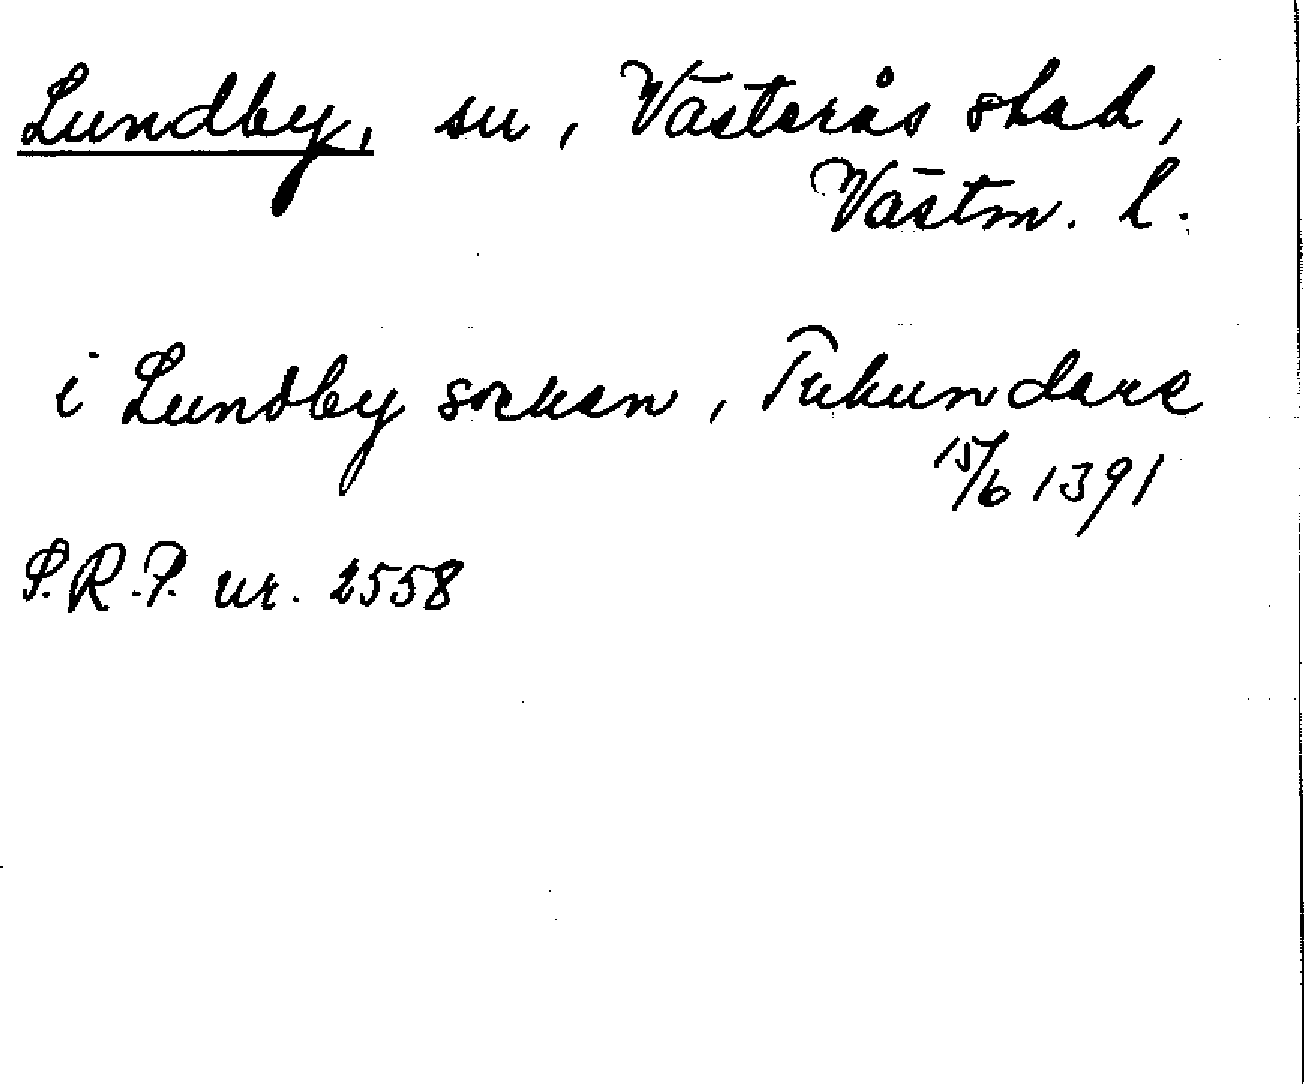 Lundby, sn, Västerås stad,
Västm. l.
i Lundby soken, Tuhundare
15/6 1391
S.R.P. nr. 2558